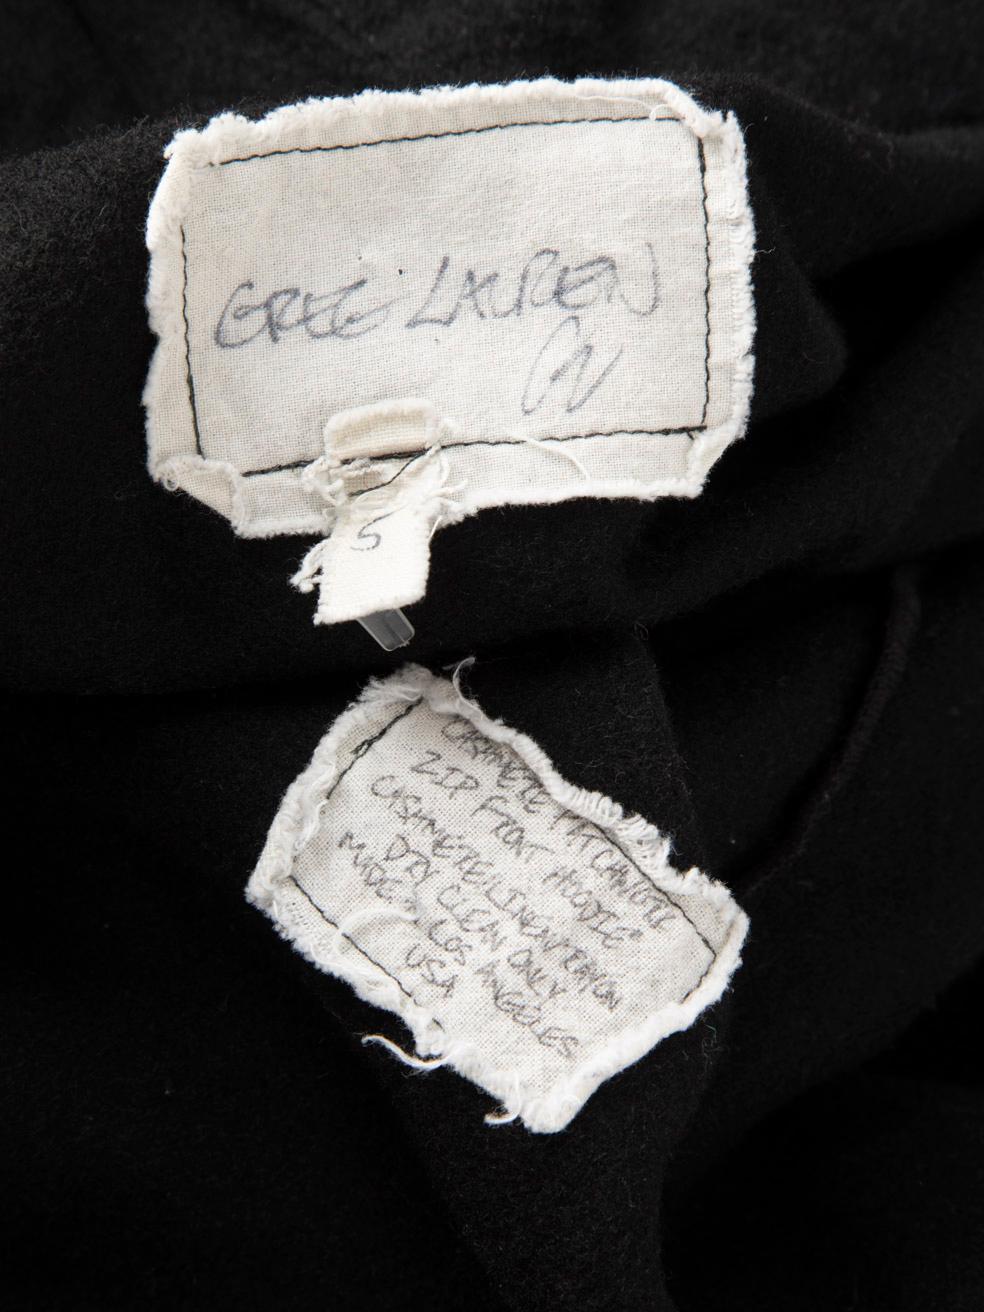 GREG LAUREN
S
CASHMERE PATCHWORK
ZIP FRONT HOODIE
CASHMERE/LINEN/RAYON
DRY CLEAN ONLY
MADE LOS ANGELES
USA